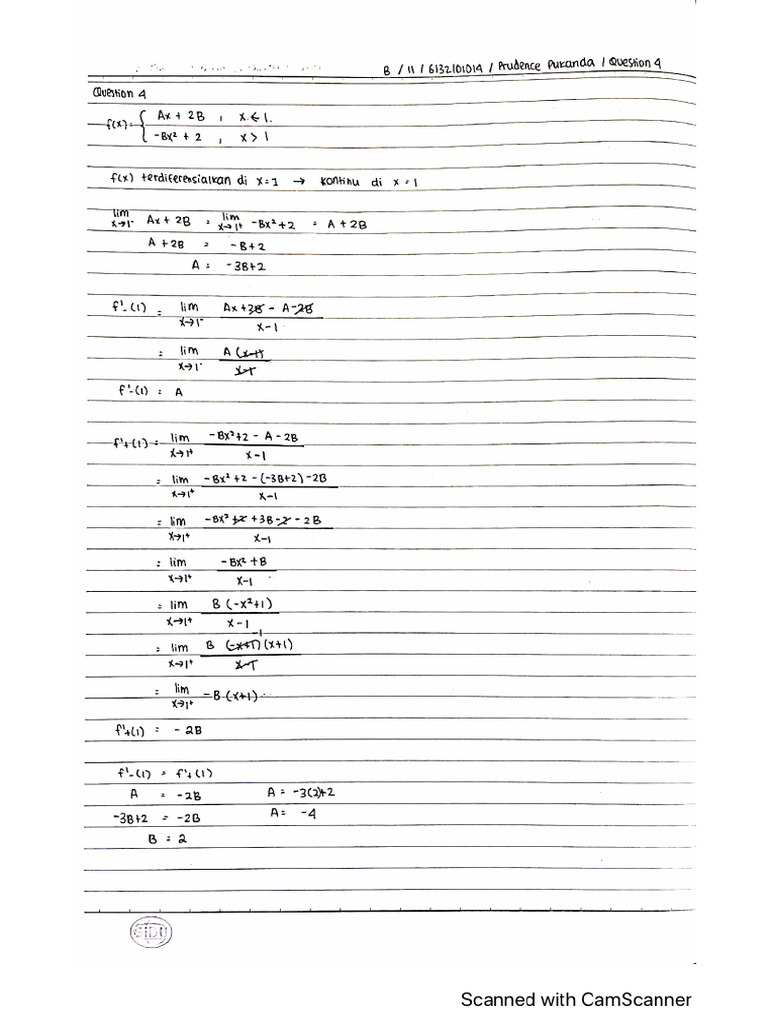 B / 11 / 6132101014 / Prudence Pukanda / Question 4
Question 4
f(x) = { Ax + 2B , x ≤ 1.
-Bx² + 2 , x > 1
f(x) terdiferensialkan di x=1 → kontinu di x = 1
lim x→1⁻ Ax + 2B = lim x→1⁺ -Bx²+2 = A + 2B
A + 2B = -B+2
A = -3B+2
f'₋(1) = lim x→1⁻ (Ax + 2B - A - 2B)/(x-1)
= lim x→1⁻ A(x-1)/(x-1)
f'₋(1) = A
f'₊(1) = lim x→1⁺ (-Bx²+2 - A - 2B)/(x-1)
= lim x→1⁺ (-Bx² +2 -(-3B+2) -2B)/(x-1)
= lim x→1⁺ (-Bx² +2 +3B -2 - 2B)/(x-1)
= lim x→1⁺ (-Bx² + B)/(x-1)
= lim x→1⁺ B(-x²+1)/(x-1)
= lim x→1⁺ B (-x+1)(x+1)/(x-1) -1
= lim x→1⁺ -B(x+1)
f'₊(1) = - 2B
f'₋(1) = f'₊(1)
A = -2B A = -3(2)+2
-3B+2 = -2B A = -4
B = 2
SIDU
Scanned with CamScanner